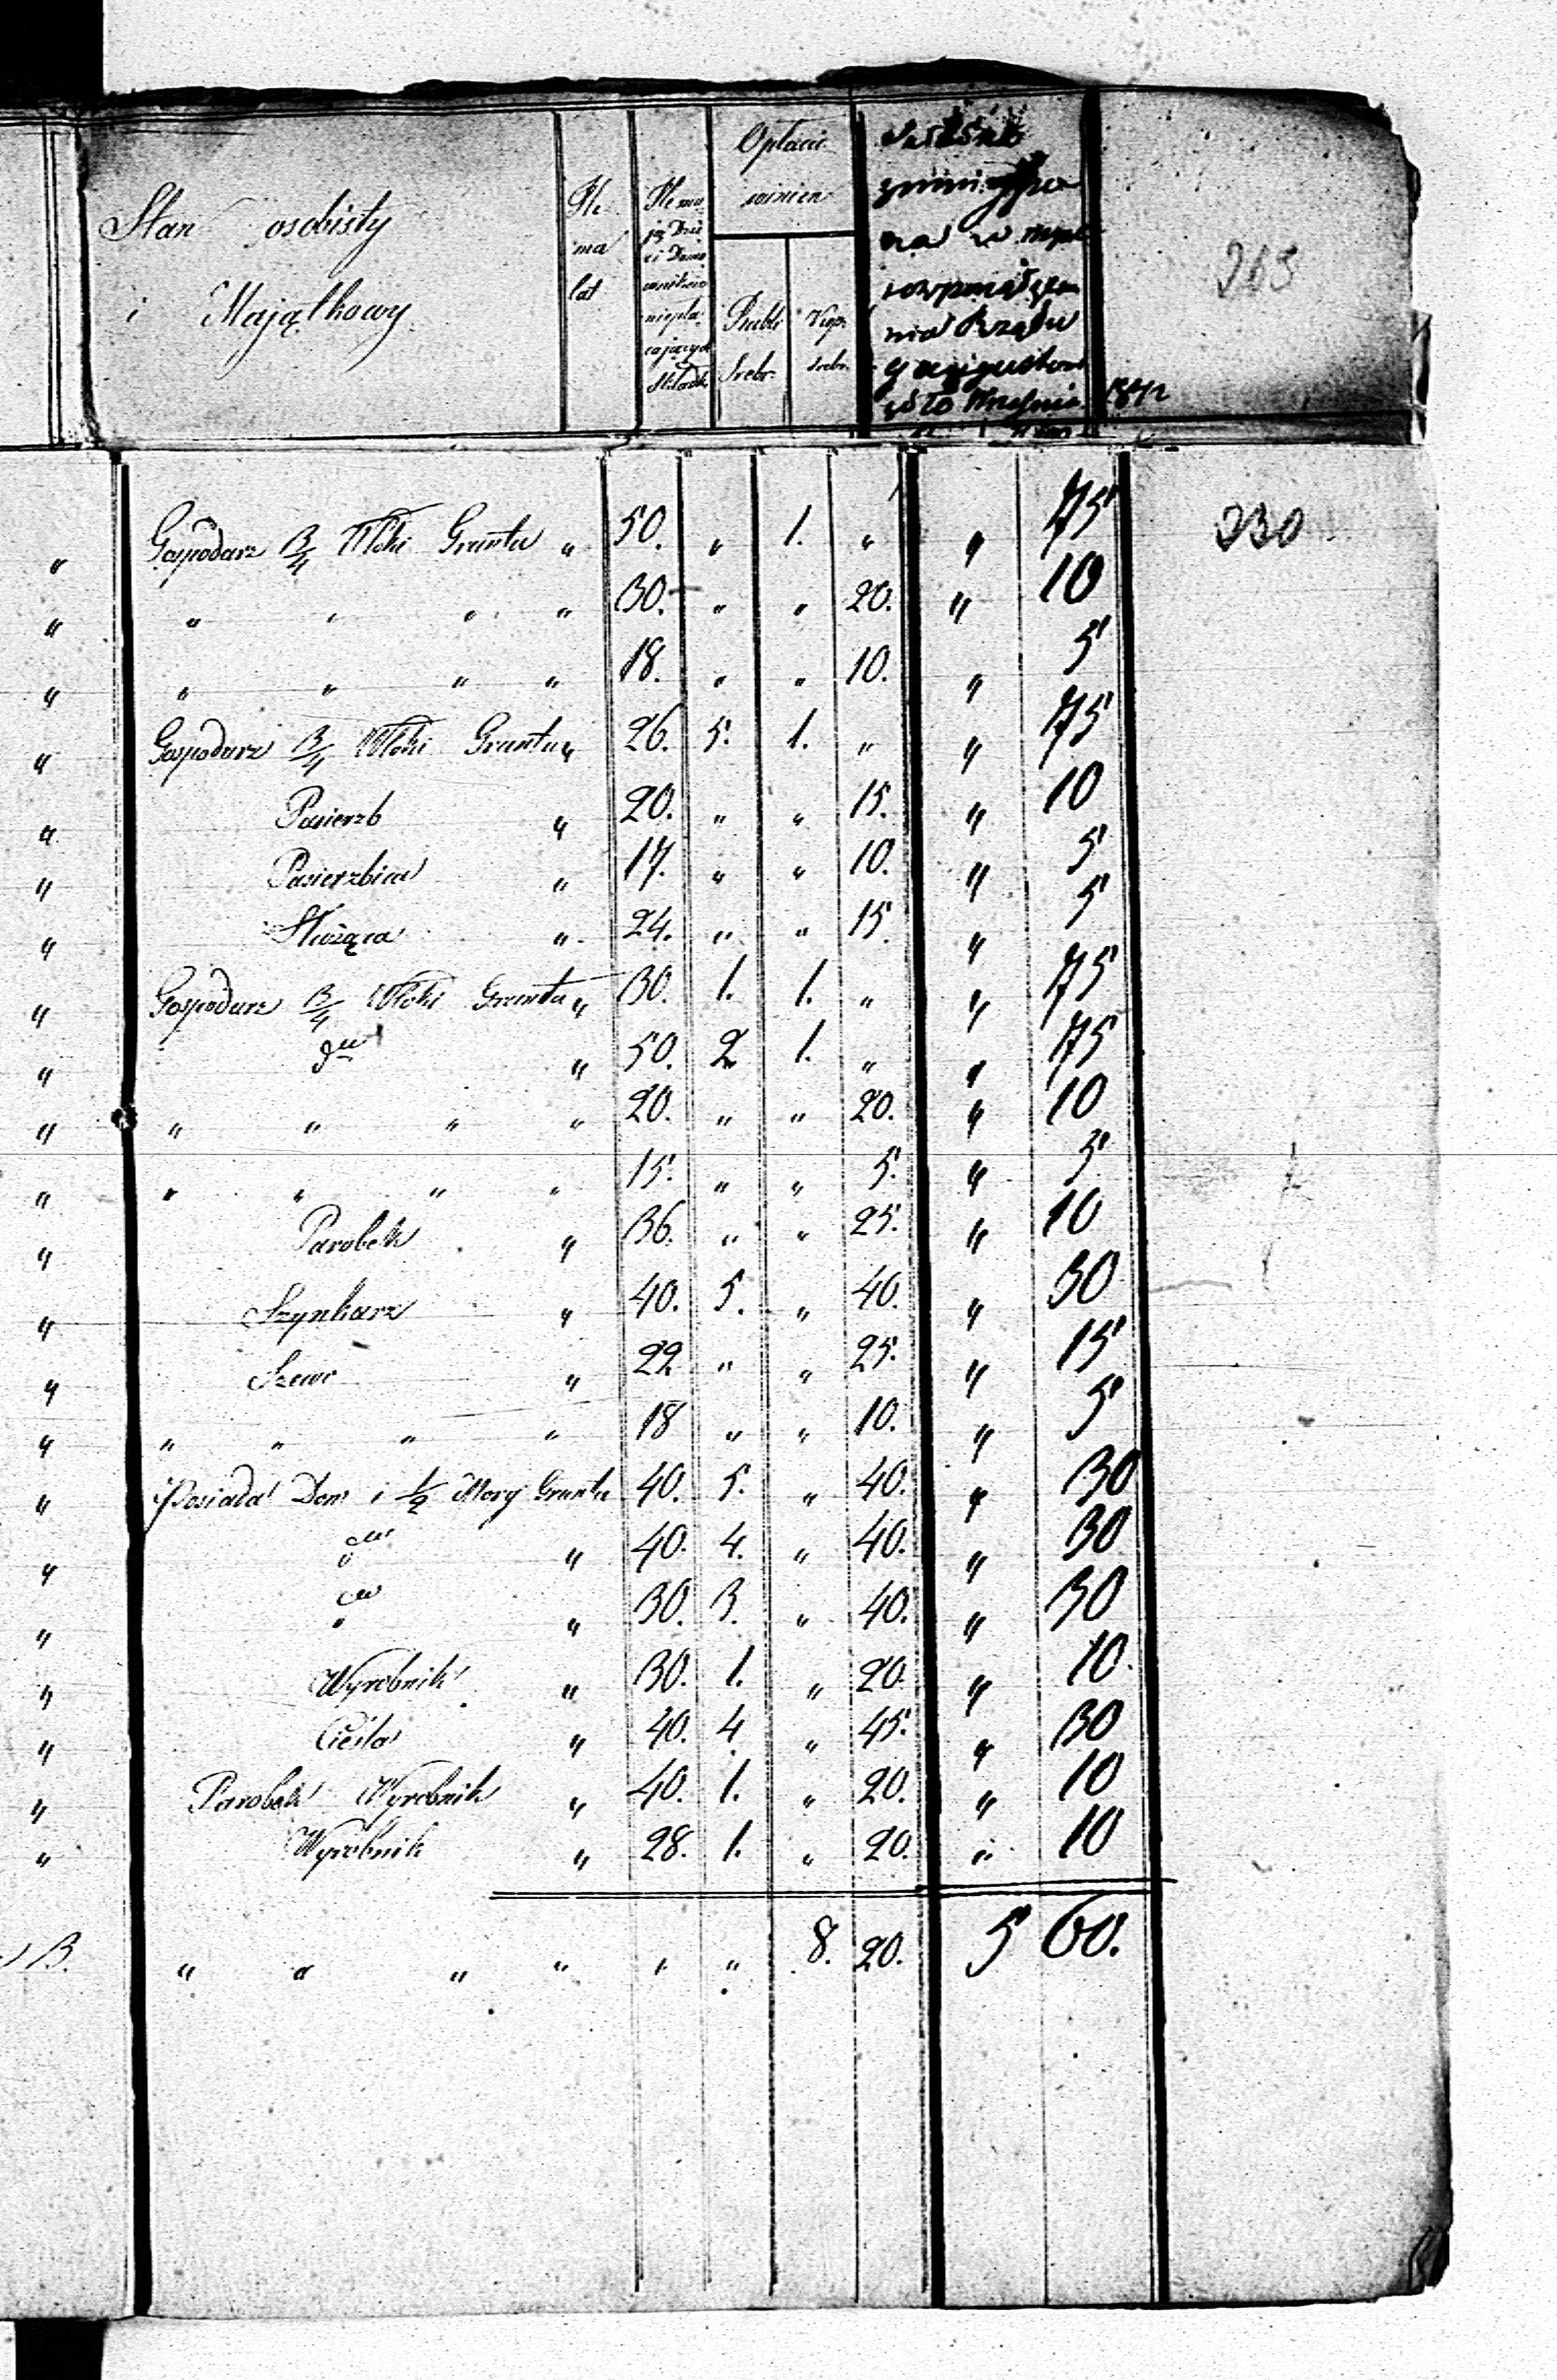 Stan osobisty
i Majątkowy
Ile
ma
lat
Ile ma
Opłacić
winien
Rubli
Srebr.
Kop.
srebr.
na
nia Rządu
1841r
263
230
„ Gospodarz 3/4 Włóki Gruntu „ 50. „ 1. „ „ 75
„ „ „ „ „ 30. „ „ 20. „ 10
„ „ „ „ „ 18. „ „ 10. „ 5
„ Gospodarz 3/4 Włóki Gruntu „ 26. 5. 1. „ „ 75
„ Pasierzb „ 20. „ „ 15. „ 10
„ Pasierzbica „ 17. „ „ 10. „ 5
„ Służąca „ 24. „ „ 15. „ 5
„ Gospodarz 3/4 Włóki Gruntu „ 30. 1. 1. „ „ 75
„ „ 50. 2 1. „ „ 75
„ „ „ „ „ 20. „ „ 20. „ 10
„ „ „ „ „ 15. „ „ 5. „ 5
„ Parobek „ 36. „ „ 25. „ 10
„ Szynkarz „ 40. 5. „ 40. „ 30
„ Szewc „ 22 „ „ 25. „ 15
„ „ „ „ „ 18 „ „ 10. „ 5
„ Posiada Dom i 1/2 Morg Gruntu 40. 5. „ 40. „ 30
„ „ 40. 4. „ 40. „ 30
„ „ 30. 3. „ 40. „ 30
„ Wyrobnik „ 30. 1. „ 20. „ 10
„ Cieśla „ 40. 4 „ 45. „ 30
„ Parobek Wyrobnik „ 40. 1. „ 20. „ 10
„ Wyrobnik „ 28. 1. „ 20. „ 10
3. „ „ „ „ „ „ 8. 20. 5 60.